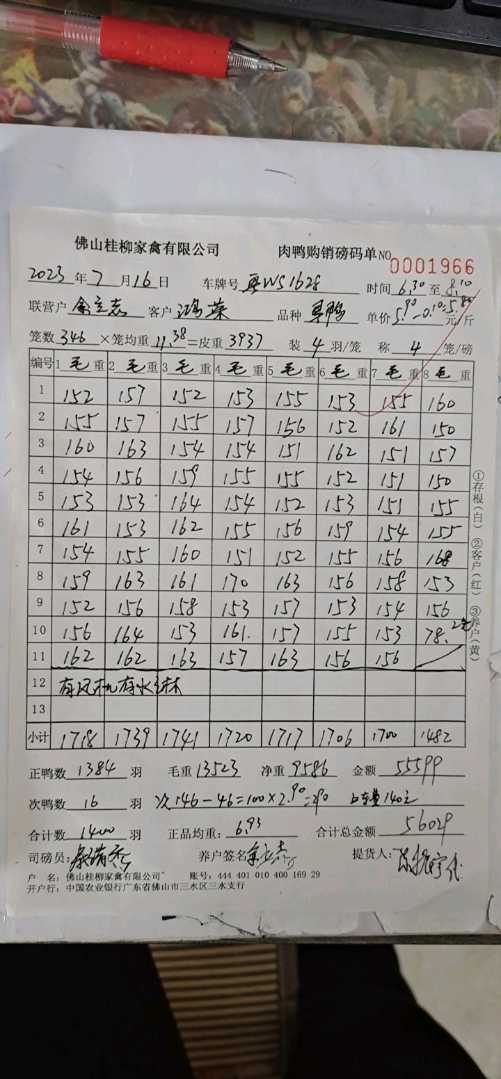 佛山桂柳家禽有限公司 肉鸭购销磅码单 NO 0001966
2023 年 7 月 16 日 车牌号 WS1628 时间 6.30 至 8.10
联营户 客户 品种 单价 5.90-0.10=5.80 元/斤
笼数 346 ×笼均重 11.38 =皮重 3937 装 4 羽/笼 称 4 笼/磅
编号 1 毛 重 2 毛 重 3 毛 重 4 毛 重 5 毛 重 6 毛 重 7 毛 重 8 毛 重
1 152 157 152 153 155 153 155 160
2 155 157 155 157 156 152 161 150
3 160 163 154 154 151 162 151 157
4 154 156 159 155 155 152 151 150
5 153 153 164 154 152 153 151 155
6 161 153 162 155 156 159 154 155
7 154 155 160 151 152 155 156 168
8 159 163 161 170 163 156 158 153
9 152 156 158 153 157 153 154 156
10 156 164 153 161. 157 155 153 78.
11 162 162 163 157 163 156 156
12 有风机有水
13
小计 1718 1739 1741 1720 1717 1706 1700 1482
①存根(白) ②客户(红) ③养户(黄)
正鸭数 1384 羽 毛重 13523 净重 9586 金额 55599
次鸭数 16 羽 次146-46=100×2.90=290 140元
合计数 1400 羽 正品均重: 6.93 合计总金额 56029
司磅员: 养户签名 提货人:
户 名: 佛山桂柳家禽有限公司 账号: 444 401 010 400 169 29
开户行: 中国农业银行广东省佛山市三水区三水支行